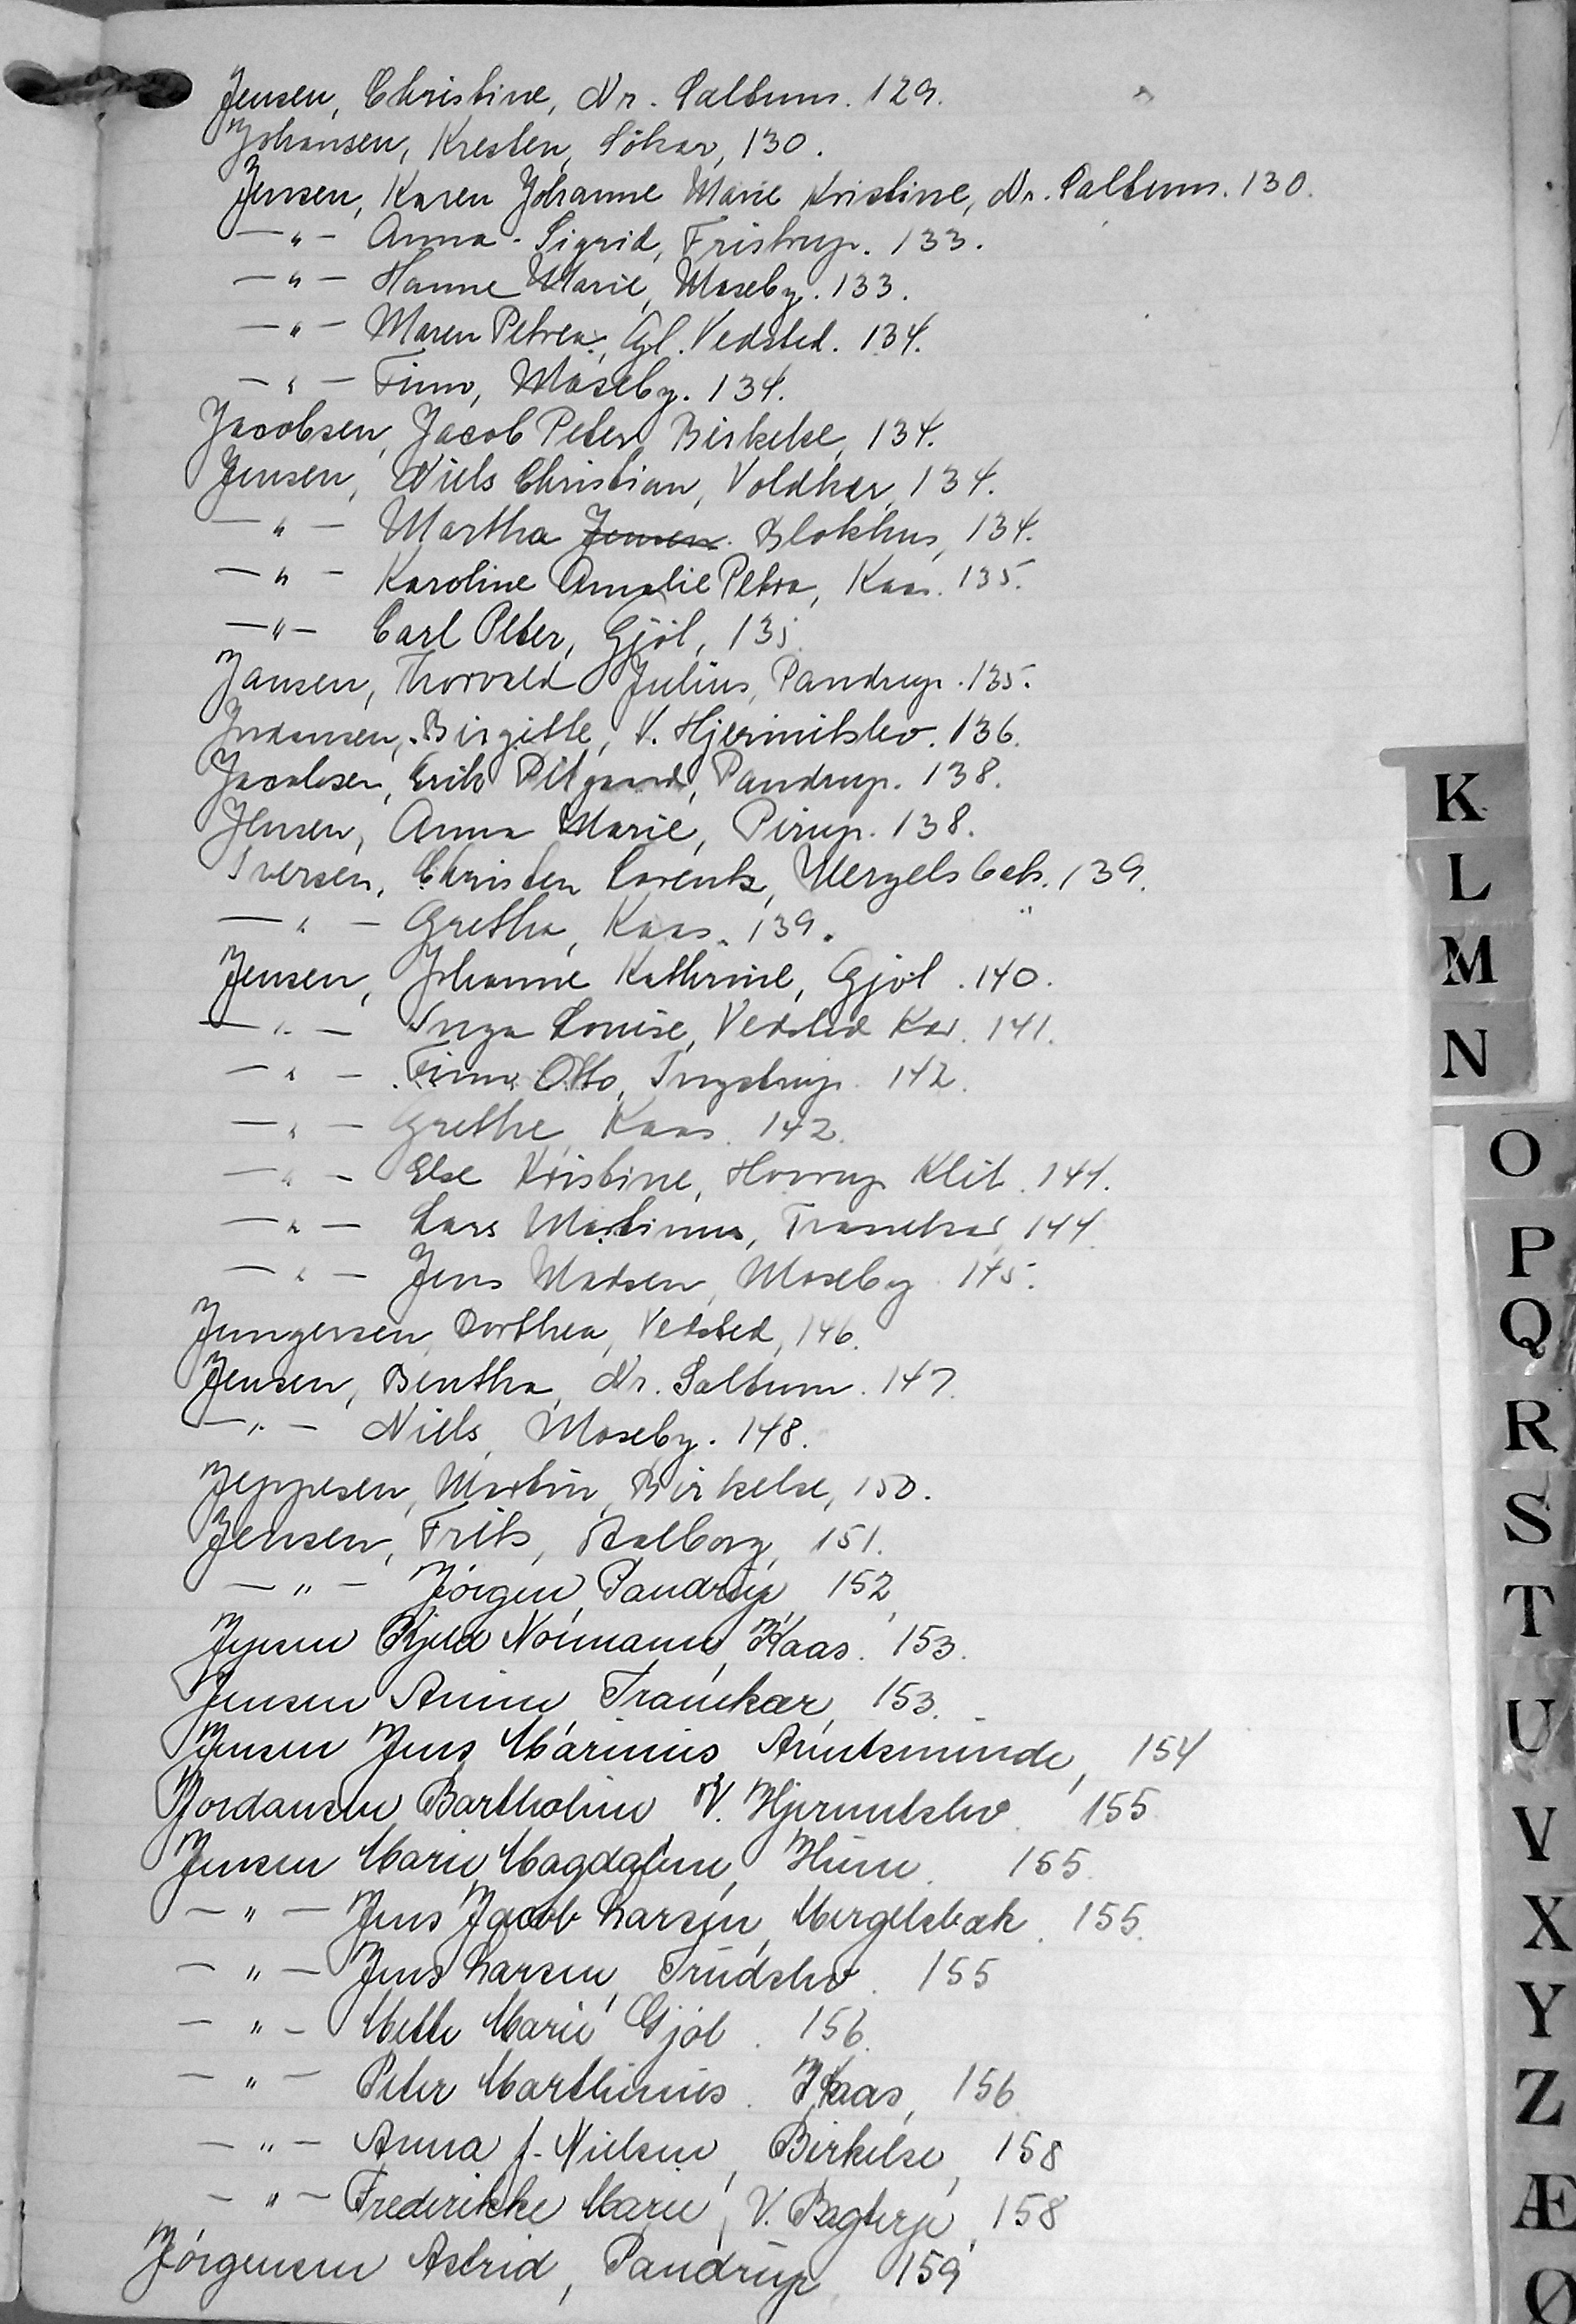 Jensen, Christine, Nr. Saltum. 129.
Johansen, Kresten, Sökær, 130.
Jensen, Karen Johanne Marie Kristine, Nr. Saltum. 130.
—"— Anna Sigrid, Fristrup. 133.
—"— Hanne Marie, Moseby. 133.
—"— Maren Petrea, Gl. Vedsted. 134.
—"— Finn, Moseby. 134.
Jacobsen, Jacob Peter, Birkelse, 134.
Jensen, Niels Christian, Voldkær, 134.
—"— Martha Jensen. Blokhus, 134.
—"— Karoline Amalie Petra, Kaas. 135.
—"— Carl Peter, Gjöl, 135
Jansen, Thorvald Julius, Pandrup. 135.
Jordansen, Birgitte, V. Hjermitslev. 136.
Jacobsen, Erik Pilgaard, Pandrup. 138.
Jensen, Anna Marie, Pirup. 138.
Iversen, Christen Lorents, Mergelsbæk. 139.
—"— Grethe, Kaas. 139.
Jensen, Johanne Kathrine, Gjöl. 140.
—"— Inga Louise, Vedsted Kær. 141.
—"— Finn Otto, Ingstrup. 142.
—"— Grethe, Kaas. 142.
—"— Else Kristine, Hovrup Klit. 144.
—"— Lars Martinus, Tranekær, 144.
—"— Jens Madsen, Moseby. 145.
Jungersen, Dorthea, Vedsted, 146.
Jensen, Bentha, Nr. Saltum. 147.
—"— Niels, Moseby. 148.
Jeppesen, Martin, Birkelse, 150.
Jensen, Frits, Aalborg, 151.
—"— Jörgen, Pandrup, 152,
Jepsen Kjeld Normann, Kaas. 153.
Jensen Anine, Tranekær, 153.
Jensen Jens Marinus Arentsminde, 154
Jordansen Bartholine V. Hjermitslev. 155
Jensen Marie Magdalene, Hune. 155.
—"— Jens Jacob Larsen, Mergelsbæk. 155.
—"— Jens Larsen, Trudslev. 155
—"— Mette Marie Gjöl. 156.
—"— Peter Marthinus. Kaas, 156.
—"— Anna J. Nielsen, Birkelse, 158
—"— Frederikke Marie, V. Bagterp, 158
Jörgensen Astrid, Pandrup, 159
K
L
M
N
O
P
Q
R
S
T
U
V
X
Y
Z
Æ
Ø